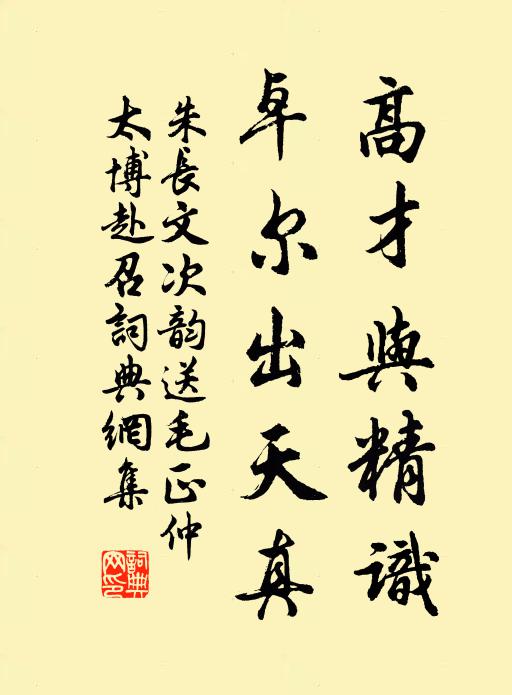 高才與精識
卓尔出天真
朱長文次韵送毛正仲
太博赴召詞典網集
詞典网印